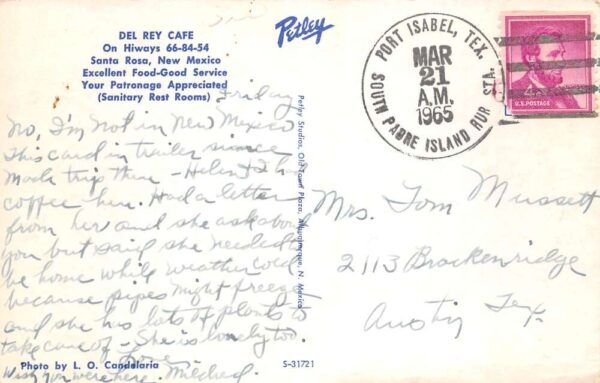 DEL REY CAFE
On Hiways 66-84-54
Santa Rosa, New Mexico
Excellent Food-Good Service
Your Patronage Appreciated
(Sanitary Rest Rooms)
Petley
PORT ISABEL, TEX.
MAR
21
A.M.
1965
SOUTH PADRE ISLAND RUR. STA.
4¢
U.S. POSTAGE
Friday
No, I'm not in New Mexico
This card in trailer since
Made trip then - Helen & I
coffee here. Had a letter
from her and she ask about
you but said she needed to
be home while weather cold
because pipes might freeze
and she has lots of plants to
take care of - She is lonely too.
Love
Wish you were here. Mildred.
Petley Studios, Old Town Plaza, Albuquerque, N. Mexico
Mrs. Tom Mussett
2113 Brackenridge
Austin Tex.
Photo by L. O. Candelaria
S-31721